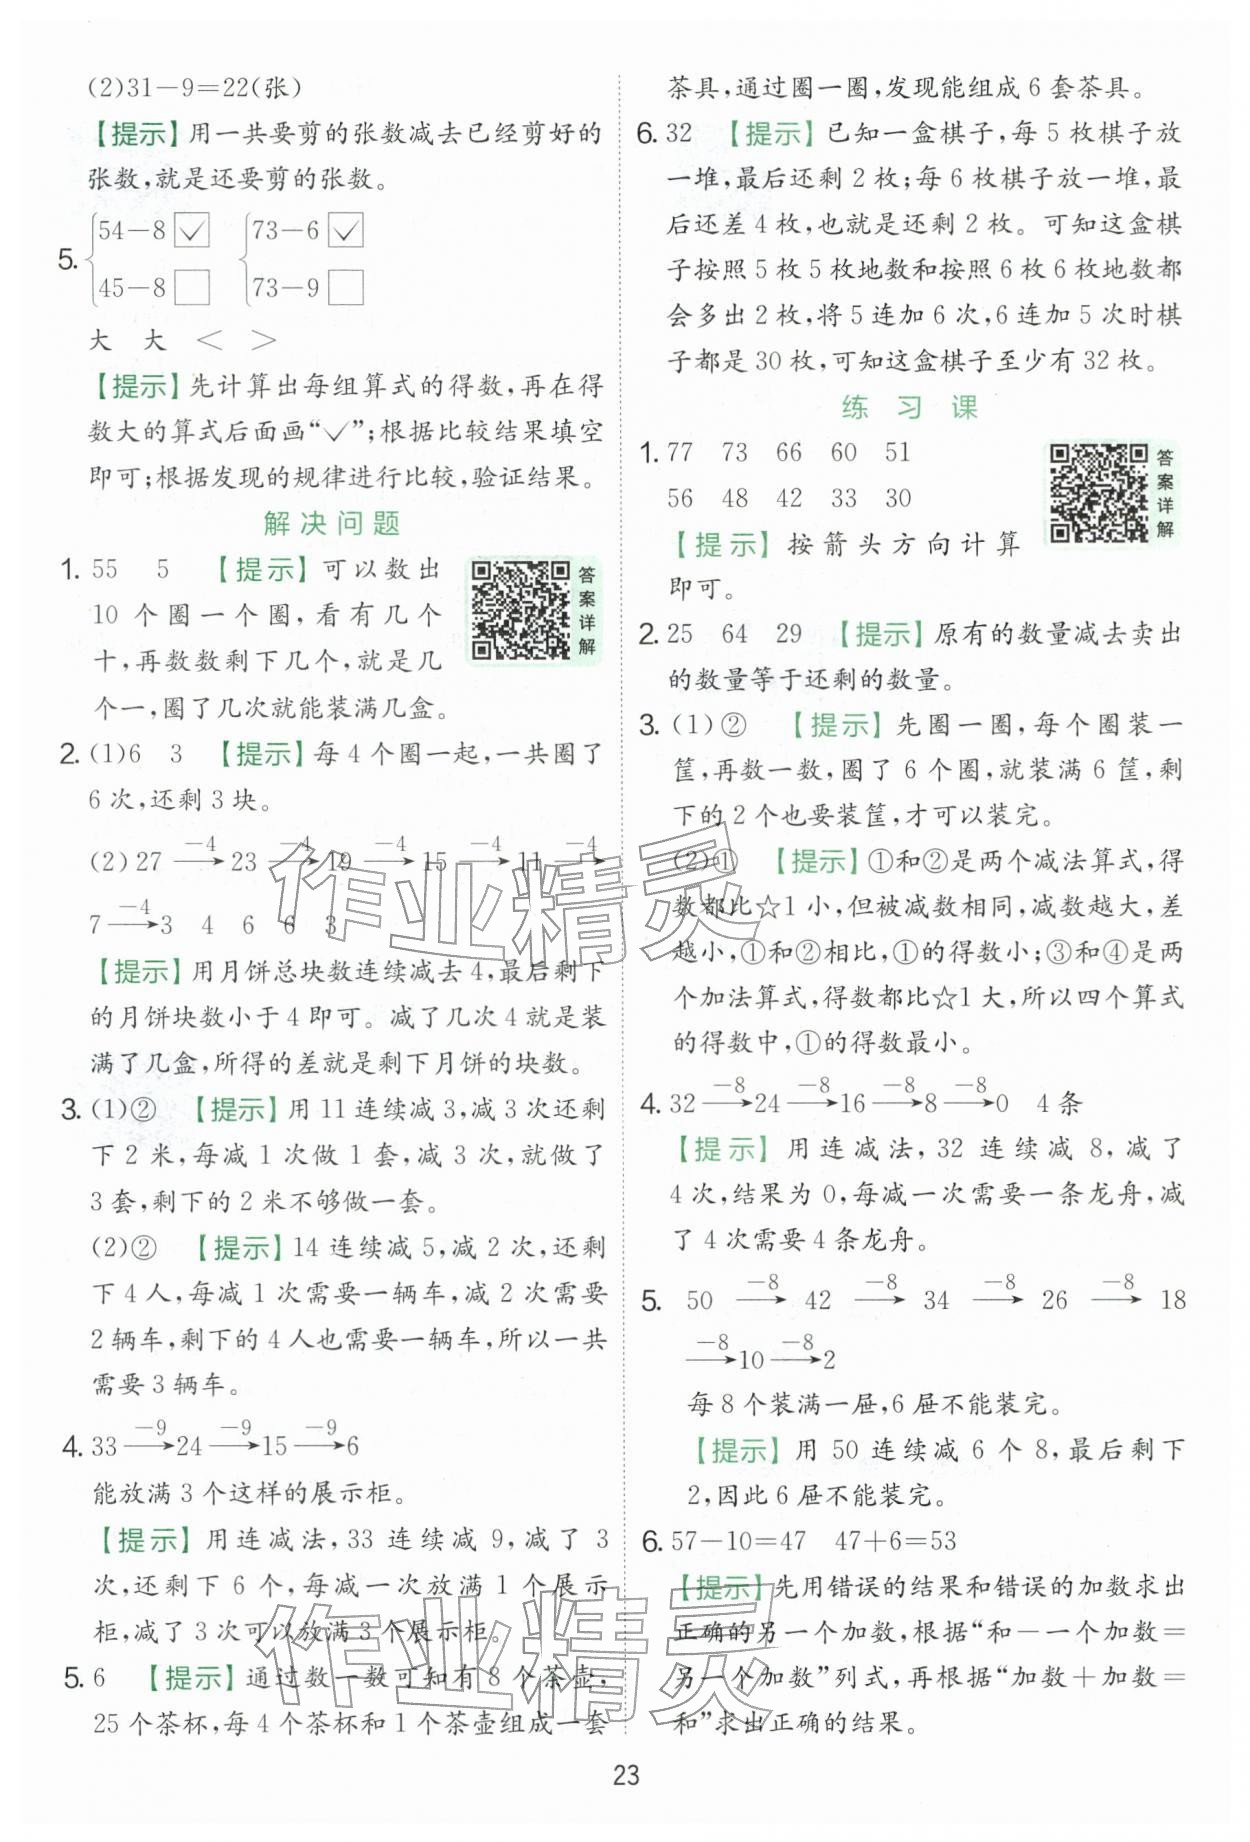 (2)31－9＝22(张)
【提示】用一共要剪的张数减去已经剪好的
张数,就是还要剪的张数。
5.
54－8 ✓ 73－6 ✓
45－8 □ 73－9 □
大 大 ＜ ＞
【提示】先计算出每组算式的得数,再在得
数大的算式后面画“✓”;根据比较结果填空
即可;根据发现的规律进行比较,验证结果。
解决问题
1. 55 5 【提示】可以数出
10 个圈一个圈,看有几个
十,再数数剩下几个,就是几
个一,圈了几次就能装满几盒。
答案详解
2. (1)6 3 【提示】每 4 个圈一起,一共圈了
6 次,还剩 3 块。
(2) 27 —−4→ 23 —−4→ 19 —−4→ 15 —−4→ 11 —−4→
7 —−4→ 3 4 6 6 3
【提示】用月饼总块数连续减去 4,最后剩下
的月饼块数小于 4 即可。减了几次 4 就是装
满了几盒,所得的差就是剩下月饼的块数。
3. (1)② 【提示】用 11 连续减 3,减 3 次还剩
下 2 米,每减 1 次做 1 套,减 3 次,就做了
3 套,剩下的 2 米不够做一套。
(2)② 【提示】14 连续减 5,减 2 次,还剩
下 4 人,每减 1 次需要一辆车,减 2 次需要
2 辆车,剩下的 4 人也需要一辆车,所以一共
需要 3 辆车。
4. 33 —−9→ 24 —−9→ 15 —−9→ 6
能放满 3 个这样的展示柜。
【提示】用连减法,33 连续减 9,减了 3
次,还剩下 6 个,每减一次放满 1 个展示
柜,减了 3 次可以放满 3 个展示柜。
5. 6 【提示】通过数一数可知有 8 个茶壶,
25 个茶杯,每 4 个茶杯和 1 个茶壶组成一套
茶具,通过圈一圈,发现能组成 6 套茶具。
6. 32 【提示】已知一盒棋子,每 5 枚棋子放
一堆,最后还剩 2 枚;每 6 枚棋子放一堆,最
后还差 4 枚,也就是还剩 2 枚。可知这盒棋
子按照 5 枚 5 枚地数和按照 6 枚 6 枚地数都
会多出 2 枚,将 5 连加 6 次,6 连加 5 次时棋
子都是 30 枚,可知这盒棋子至少有 32 枚。
练习课
1. 77 73 66 60 51
56 48 42 33 30
【提示】按箭头方向计算
即可。
答案详解
2. 25 64 29 【提示】原有的数量减去卖出
的数量等于还剩的数量。
3. (1)② 【提示】先圈一圈,每个圈装一
筐,再数一数,圈了 6 个圈,就装满 6 筐,剩
下的 2 个也要装筐,才可以装完。
(2)① 【提示】①和②是两个减法算式,得
数都比☆1 小,但被减数相同,减数越大,差
越小,①和②相比,①的得数小;③和④是两
个加法算式,得数都比☆1 大,所以四个算式
的得数中,①的得数最小。
4. 32 —−8→ 24 —−8→ 16 —−8→ 8 —−8→ 0 4 条
【提示】用连减法,32 连续减 8,减了
4 次,结果为 0,每减一次需要一条龙舟,减
了 4 次需要 4 条龙舟。
5. 50 —−8→ 42 —−8→ 34 —−8→ 26 —−8→ 18
—−8→ 10 —−8→ 2
每 8 个装满一屉,6 屉不能装完。
【提示】用 50 连续减 6 个 8,最后剩下
2,因此 6 屉不能装完。
6. 57－10＝47 47＋6＝53
【提示】先用错误的结果和错误的加数求出
正确的另一个加数,根据“和－一个加数＝
另一个加数”列式,再根据“加数＋加数＝
和”求出正确的结果。
23
作业精灵
作业精灵